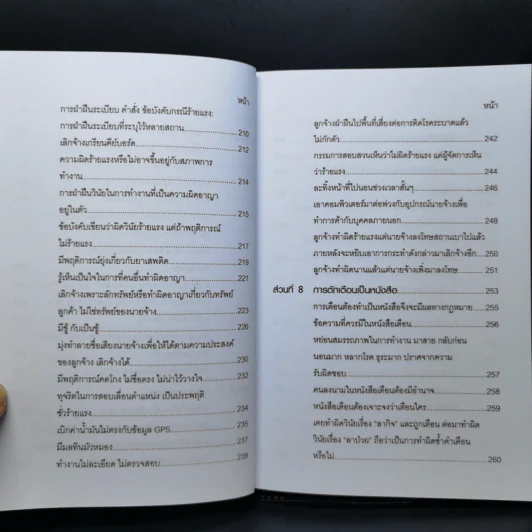 หน้า
การฝ่าฝืนระเบียบ คำสั่ง ข้อบังคับกรณีร้ายแรง:
การฝ่าฝืนระเบียบที่ระบุไว้หลายสถาน 210
เลิกจ้างเกรียนคีย์บอร์ด 212
ความผิดร้ายแรงหรือไม่อาจขึ้นอยู่กับสภาพการ
ทำงาน 214
การฝ่าฝืนวินัยในการทำงานที่เป็นความผิดอาญา
อยู่ในตัว 215
ข้อบังคับเขียนว่าผิดวินัยร้ายแรง แต่ถ้าพฤติการณ์
ไม่ร้ายแรง 217
มีพฤติการณ์ยุ่งเกี่ยวกับยาเสพติด 219
รู้เห็นเป็นใจในการที่คนอื่นทำผิดอาญา 221
เลิกจ้างเพราะลักทรัพย์หรือทำผิดอาญาเกี่ยวกับทรัพย์
ลูกค้า ไม่ใช่ทรัพย์ของนายจ้าง 223
มีชู้ กับเป็นชู้ 226
มุ่งทำลายชื่อเสียงนายจ้างเพื่อให้ได้ตามความประสงค์
ของลูกจ้าง เลิกจ้างได้ 230
มีพฤติการณ์คดโกง ไม่ซื่อตรง ไม่น่าไว้วางใจ 232
ทุจริตในการสอบเลื่อนตำแหน่ง เป็นประพฤติ
ชั่วร้ายแรง 234
เบิกค่าน้ำมันไม่ตรงกับข้อมูล GPS 235
มีมลทินมัวหมอง 237
ทำงานไม่ละเอียด ไม่ตรวจสอบ 239
หน้า
ลูกจ้างฝ่าฝืนไปพื้นที่เสี่ยงต่อการติดโรคระบาดแล้ว
ไม่กักตัว 242
กรรมการสอบสวนเห็นว่าไม่ผิดร้ายแรง แต่ผู้จัดการเห็น
ว่าร้ายแรง 244
ละทิ้งหน้าที่ไปนอนช่วงเวลาสั้นๆ 246
เอาคอมพิวเตอร์มาต่อพ่วงกับอุปกรณ์นายจ้างเพื่อ
ทำการค้ากับบุคคลภายนอก 248
ลูกจ้างทำผิดร้ายแรงแต่นายจ้างลงโทษสถานเบาไปแล้ว
ภายหลังจะหยิบเอาการกระทำดังกล่าวมาเลิกจ้างอีก 250
ลูกจ้างทำผิดนานแล้วแต่นายจ้างเพิ่งมาลงโทษ 251
ส่วนที่ 8 การตักเตือนเป็นหนังสือ 253
การเตือนต้องทำเป็นหนังสือจึงจะมีผลทางกฎหมาย 255
ข้อความที่ควรมีในหนังสือเตือน 256
หย่อนสมรรถภาพในการทำงาน มาสาย กลับก่อน
นอนมาก หลากโรค ธุระมาก ปราศจากความ
รับผิดชอบ 257
คนลงนามในหนังสือเตือนต้องมีอำนาจ 258
หนังสือเตือนต้องเจาะจงว่าเตือนใคร 259
เคยทำผิดวินัยเรื่อง "ลากิจ" และถูกเตือน ต่อมาทำผิด
วินัยเรื่อง "ลาป่วย" ถือว่าเป็นการทำผิดซ้ำคำเตือน
หรือไม่ 260